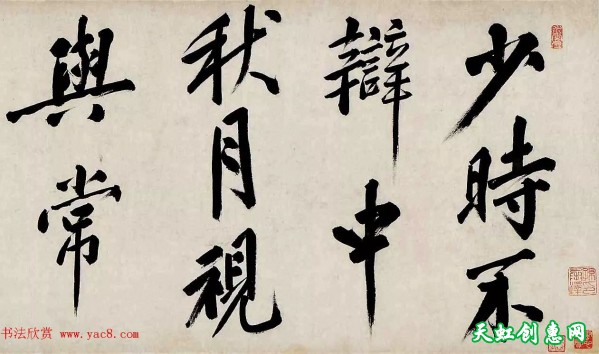 少時不
辯中
秋月視
與常
书法欣赏 www.yac8.com
天虹创惠网